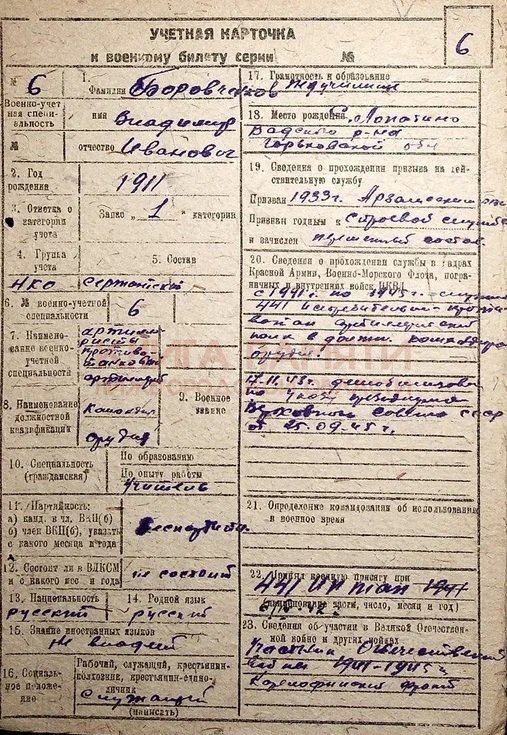 УЧЕТНАЯ КАРТОЧКА
к военному билету серии №
6
№ 6
Военно-учет
ная специ-
альность
№
1.
Фамилия Боровченков
имя Владимир
отчество Иванович
2. Год
рождения
1911
3. Отметка о
категории
учета
Запас „ 1 “ категории
4. Группа
учета
НКО
5. Состав
Сержантский
6. № военно-учетной
специальности
6
7. Наимено-
вание военно-
учетной
специальности
артилле-
ристы
противо-
танковой
артиллерии
8. Наименование
должностной
квалификации
Командир
орудия
9. Военное
звание
10. Специальность
(гражданская)
По образованию
По опыту работы
Учитель
11. Партийность:
а) канд. в чл. ВКП(б)
б) член ВКП(б), указать
с какого месяца и года
Беспарт.
12. Состоит ли в ВЛКСМ
и с какого мес. и года
не состоит
13. Национальность
русский
14. Родной язык
русский
15. Знание иностранных языков
Не владеет
16. Социаль-
ное положе-
ние
Рабочий, служащий, крестьянин-
колхозник, крестьянин-едино-
личник
Служащий
(написать)
17. Грамотность и образование
18. Место рождения С. Лопатино
Вадского р-на
Горьковской обл
19. Сведения о прохождении призыва на дей-
ствительную службу
Призван 1933г. Арзамасским
Признан годным к строевой службе
и зачислен
состав.
20. Сведения о прохождении службы в кадрах
Красной Армии, Военно-Морского Флота, погра-
ничных и внутренних войск НКВД
с 1941г. по 1945г.
441 истребительно-противо-
танков артиллерийский
полк в должн. командира
орудия.
демобилизован
по указу президиума
Верховного Совета СССР
от 25.09.45 г.
21. Определение командования об использовании
в военное время
22. Принял военную присягу при
441 ИПТАП 1941
(наименование части, число, месяц и год)
23. Сведения об участии в Великой Отечествен-
ной войне и других войнах
Участник Отечественной
войны 1941-1945г
Карелофинский фронт